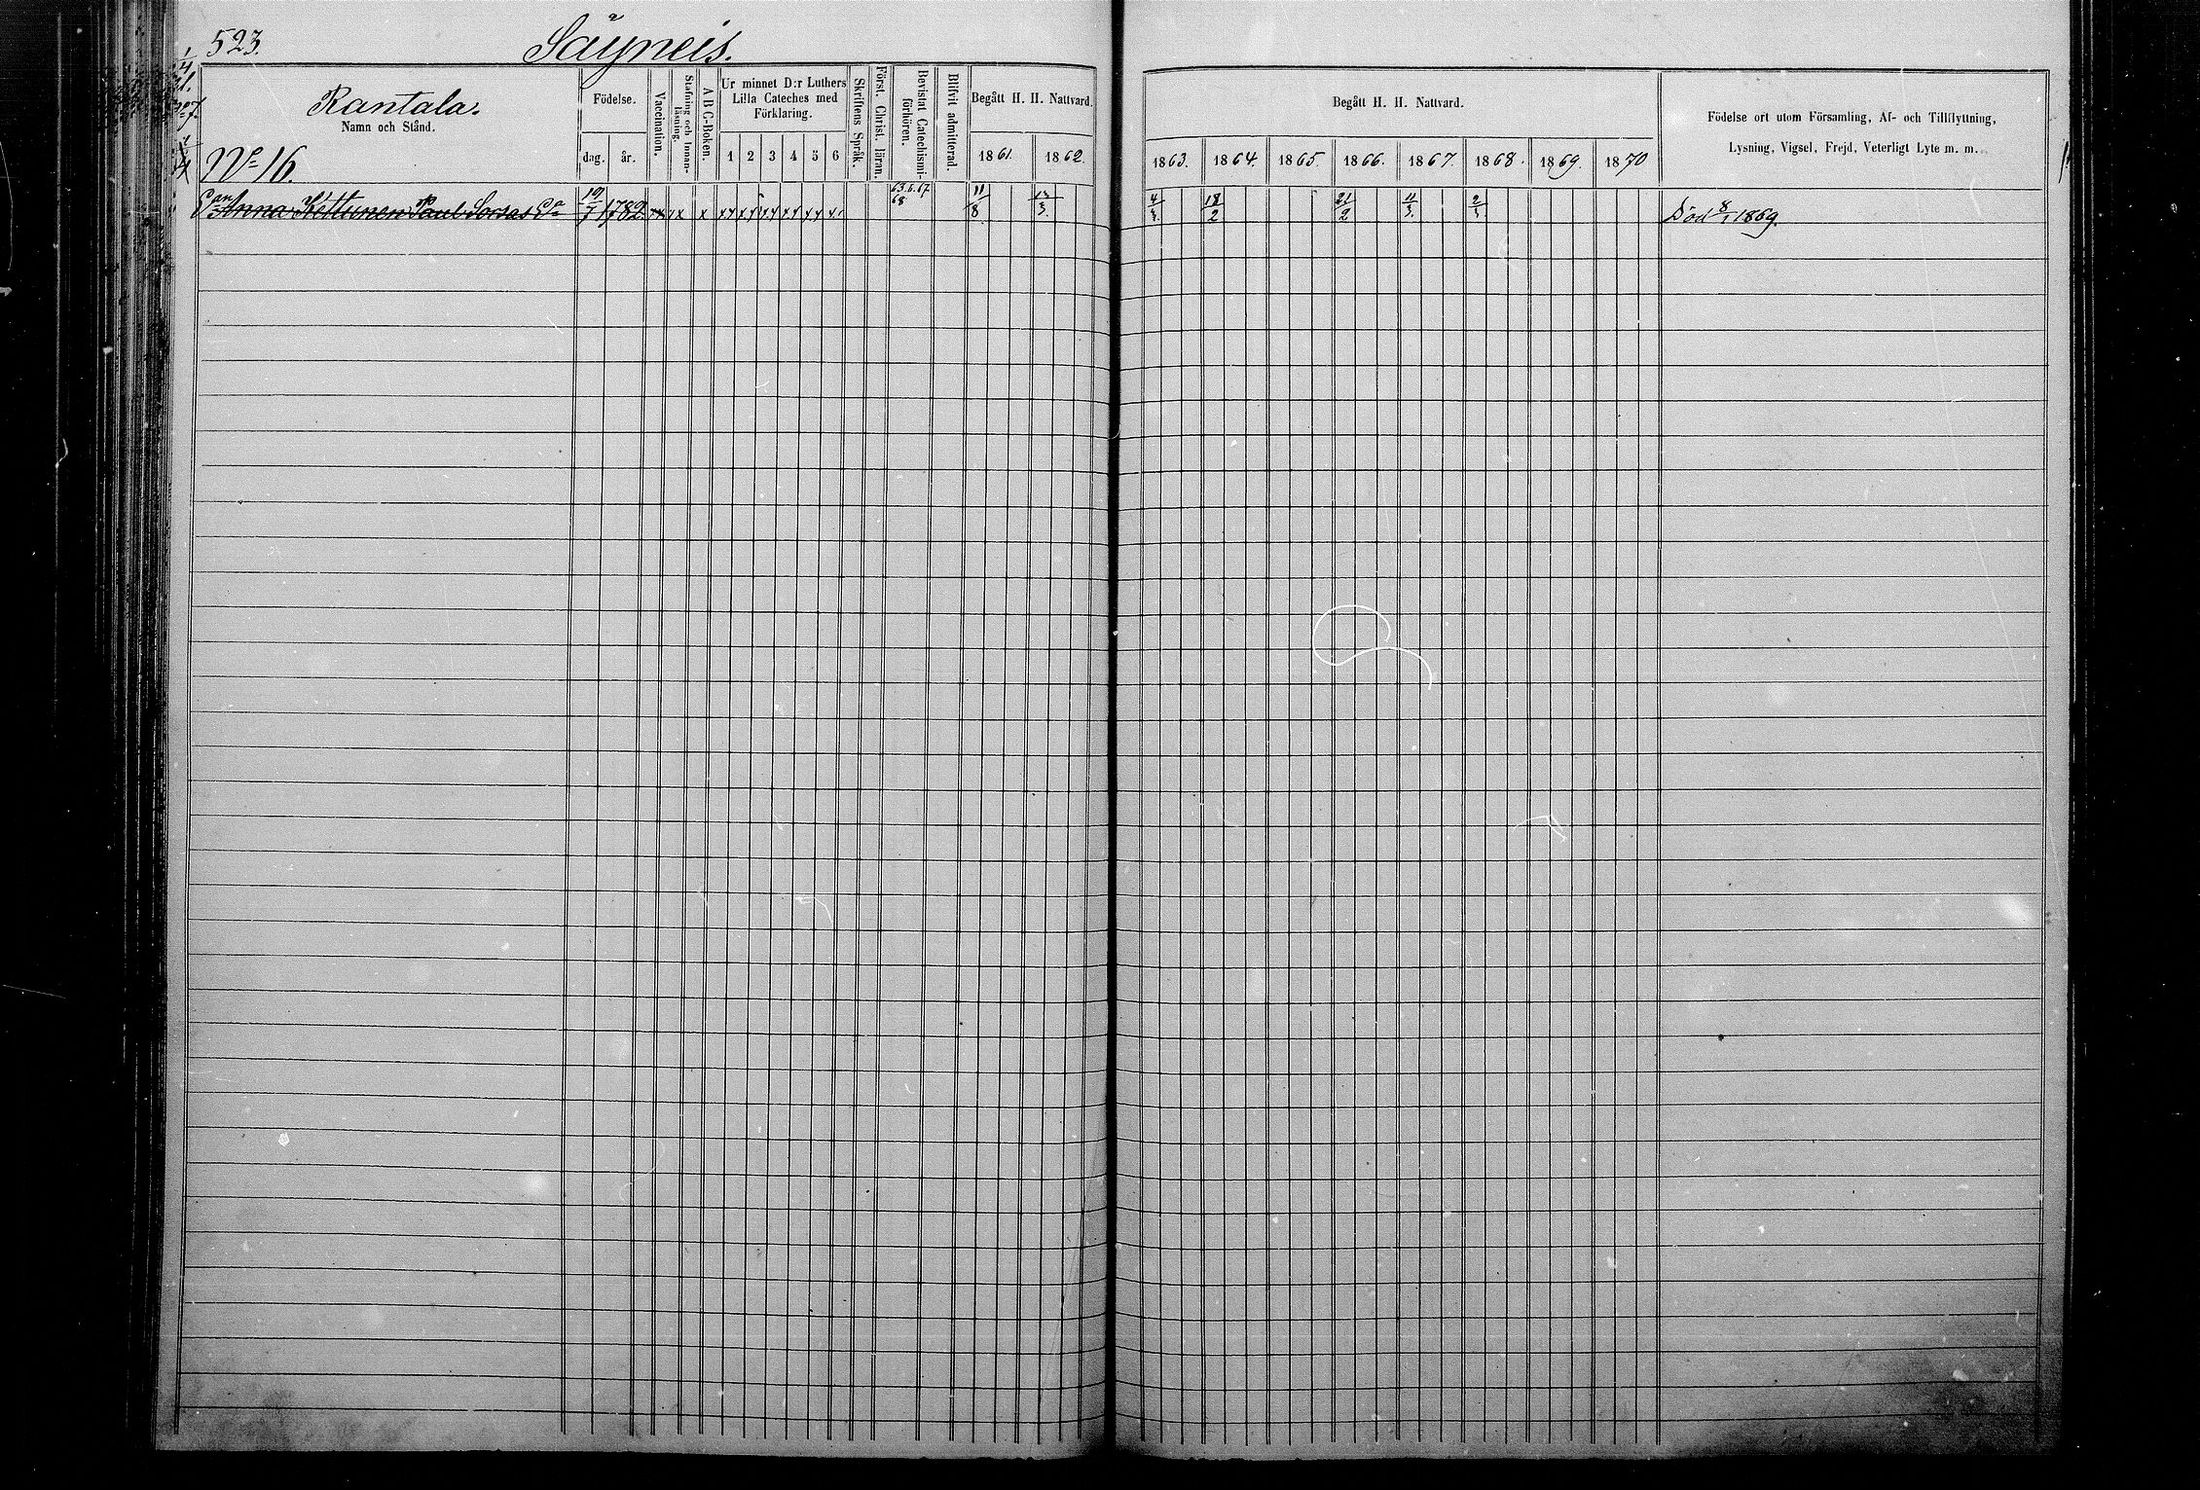 523.
Säyneis.
Rantala.
Namn och Stånd.
No 16.
Födelse.
dag. år.
Vaccination.
Stafning och Innan-läsning.
A B C-Boken.
Ur minnet D:r Luthers
Lilla Cateches med
Förklaring.
1 2 3 4 5 6
Skriftens Språk.
Först. Christ. läran.
Bevistat Catechismi-förhören.
Blifvit admitterad.
Begått H. H. Nattvard.
1861. 1862.
Begått H. H. Nattvard.
1863. 1864. 1865. 1866. 1867. 1868. 1869. 1870
Födelse ort utom Församling, Af- och Tillflyttning,
Lysning, Vigsel, Frejd, Veterligt Lyte m. m.
Anna Kettunen Paul Sorsas 19/7 1782 xx x x xx xx xx xx xx 63.6.67 68 11/8 4/3. 18/2 21/2 11/3. 2/3 Död 8/1 1869.